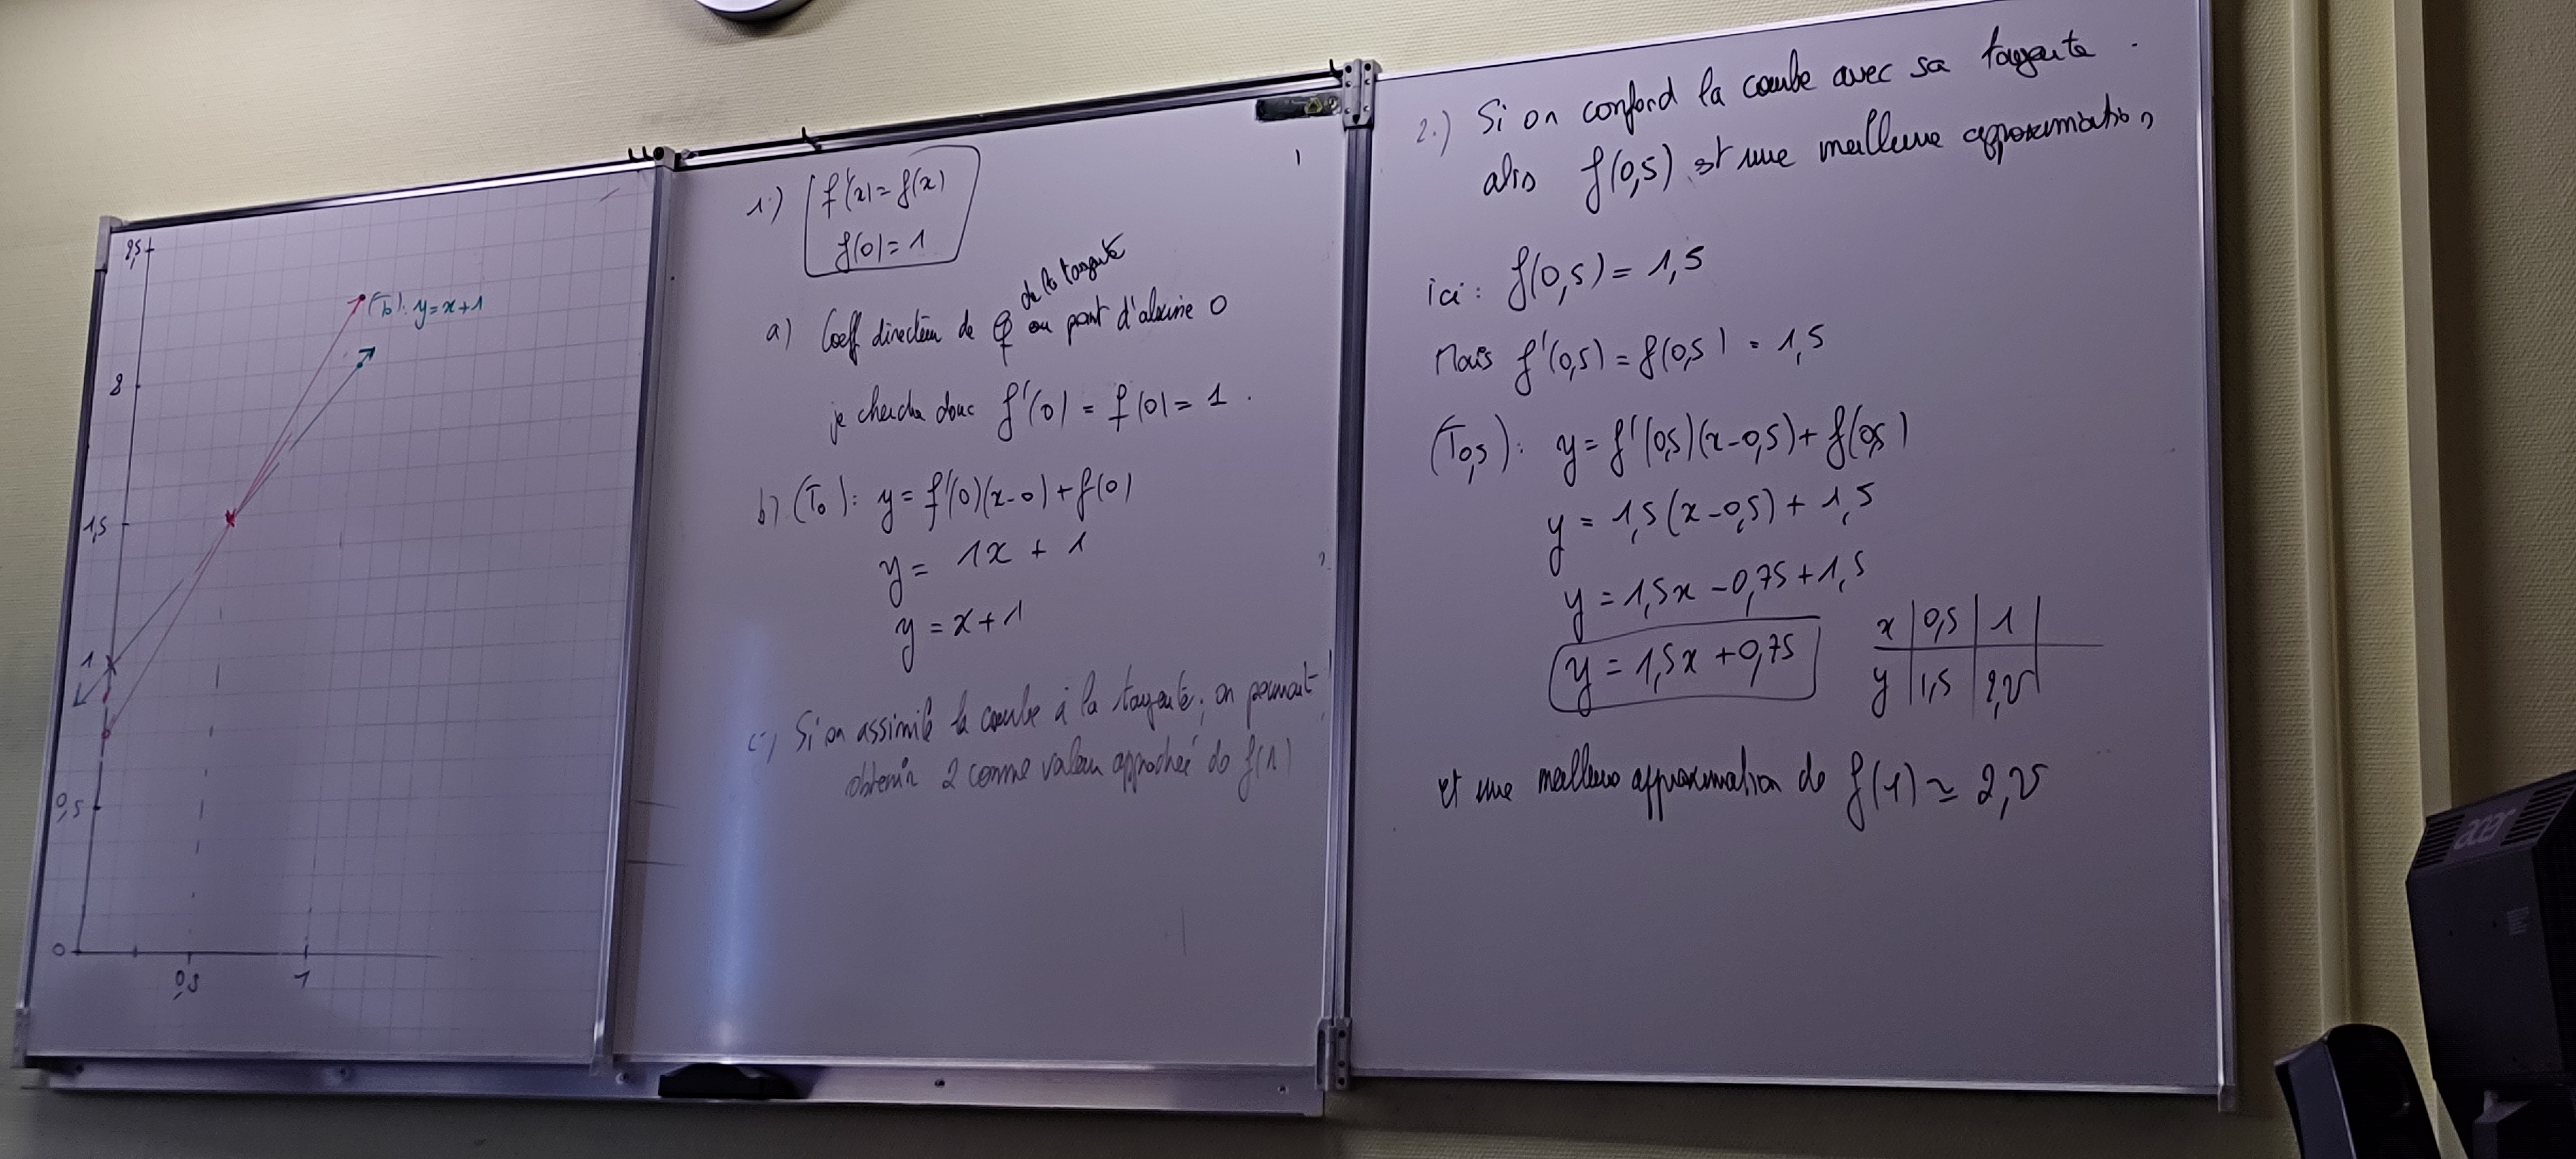 2,5
(T₀): y = x+1
2
1,5
1
0,5
0
0,5 1
1.) f'(x) = f(x)
f(0) = 1
de la tangente
a) Coeff directeur de au point d'abscisse 0
je cherche donc f'(0) = f(0) = 1.
b) (T₀): y = f'(0)(x-0)+f(0)
y = 1x + 1
y = x+1
c) Si on assimile la courbe à la tangente, on pourrait
obtenir 2 comme valeur approchée de f(1)
2.) Si on confond la courbe avec sa tangente.
alors f(0,5) est une meilleure approximation,
ici: f(0,5) = 1,5
Mais f'(0,5) = f(0,5) = 1,5
(T0,5): y = f'(0,5)(x-0,5)+ f(0,5)
y = 1,5(x-0,5)+ 1,5
y = 1,5x -0,75+1,5
y = 1,5x +0,75
x | 0,5 | 1
y | 1,5 | 2,25
et une meilleure approximation de f(1) ≃ 2,25
acer